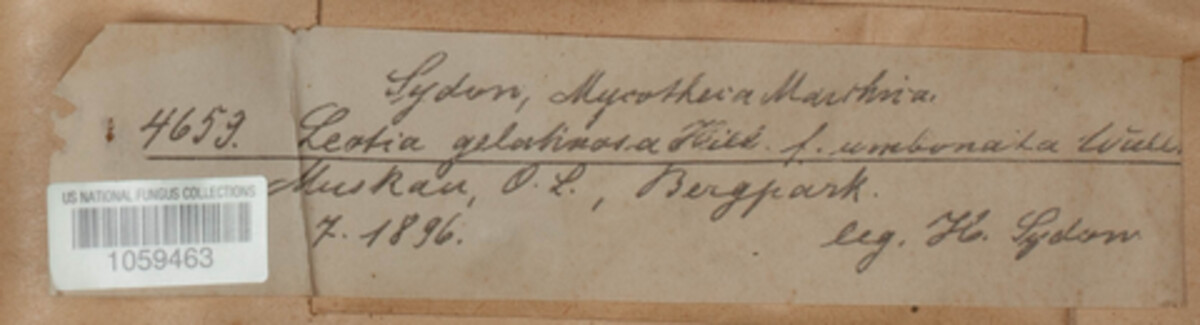 Sydow, Mycotheca Marchica.
4653. Leotia gelatinosa Hill. f. umbonata
Muskau, O. L., Bergpark.
7. 1896. leg. H. Sydow
US NATIONAL FUNGUS COLLECTIONS
1059463